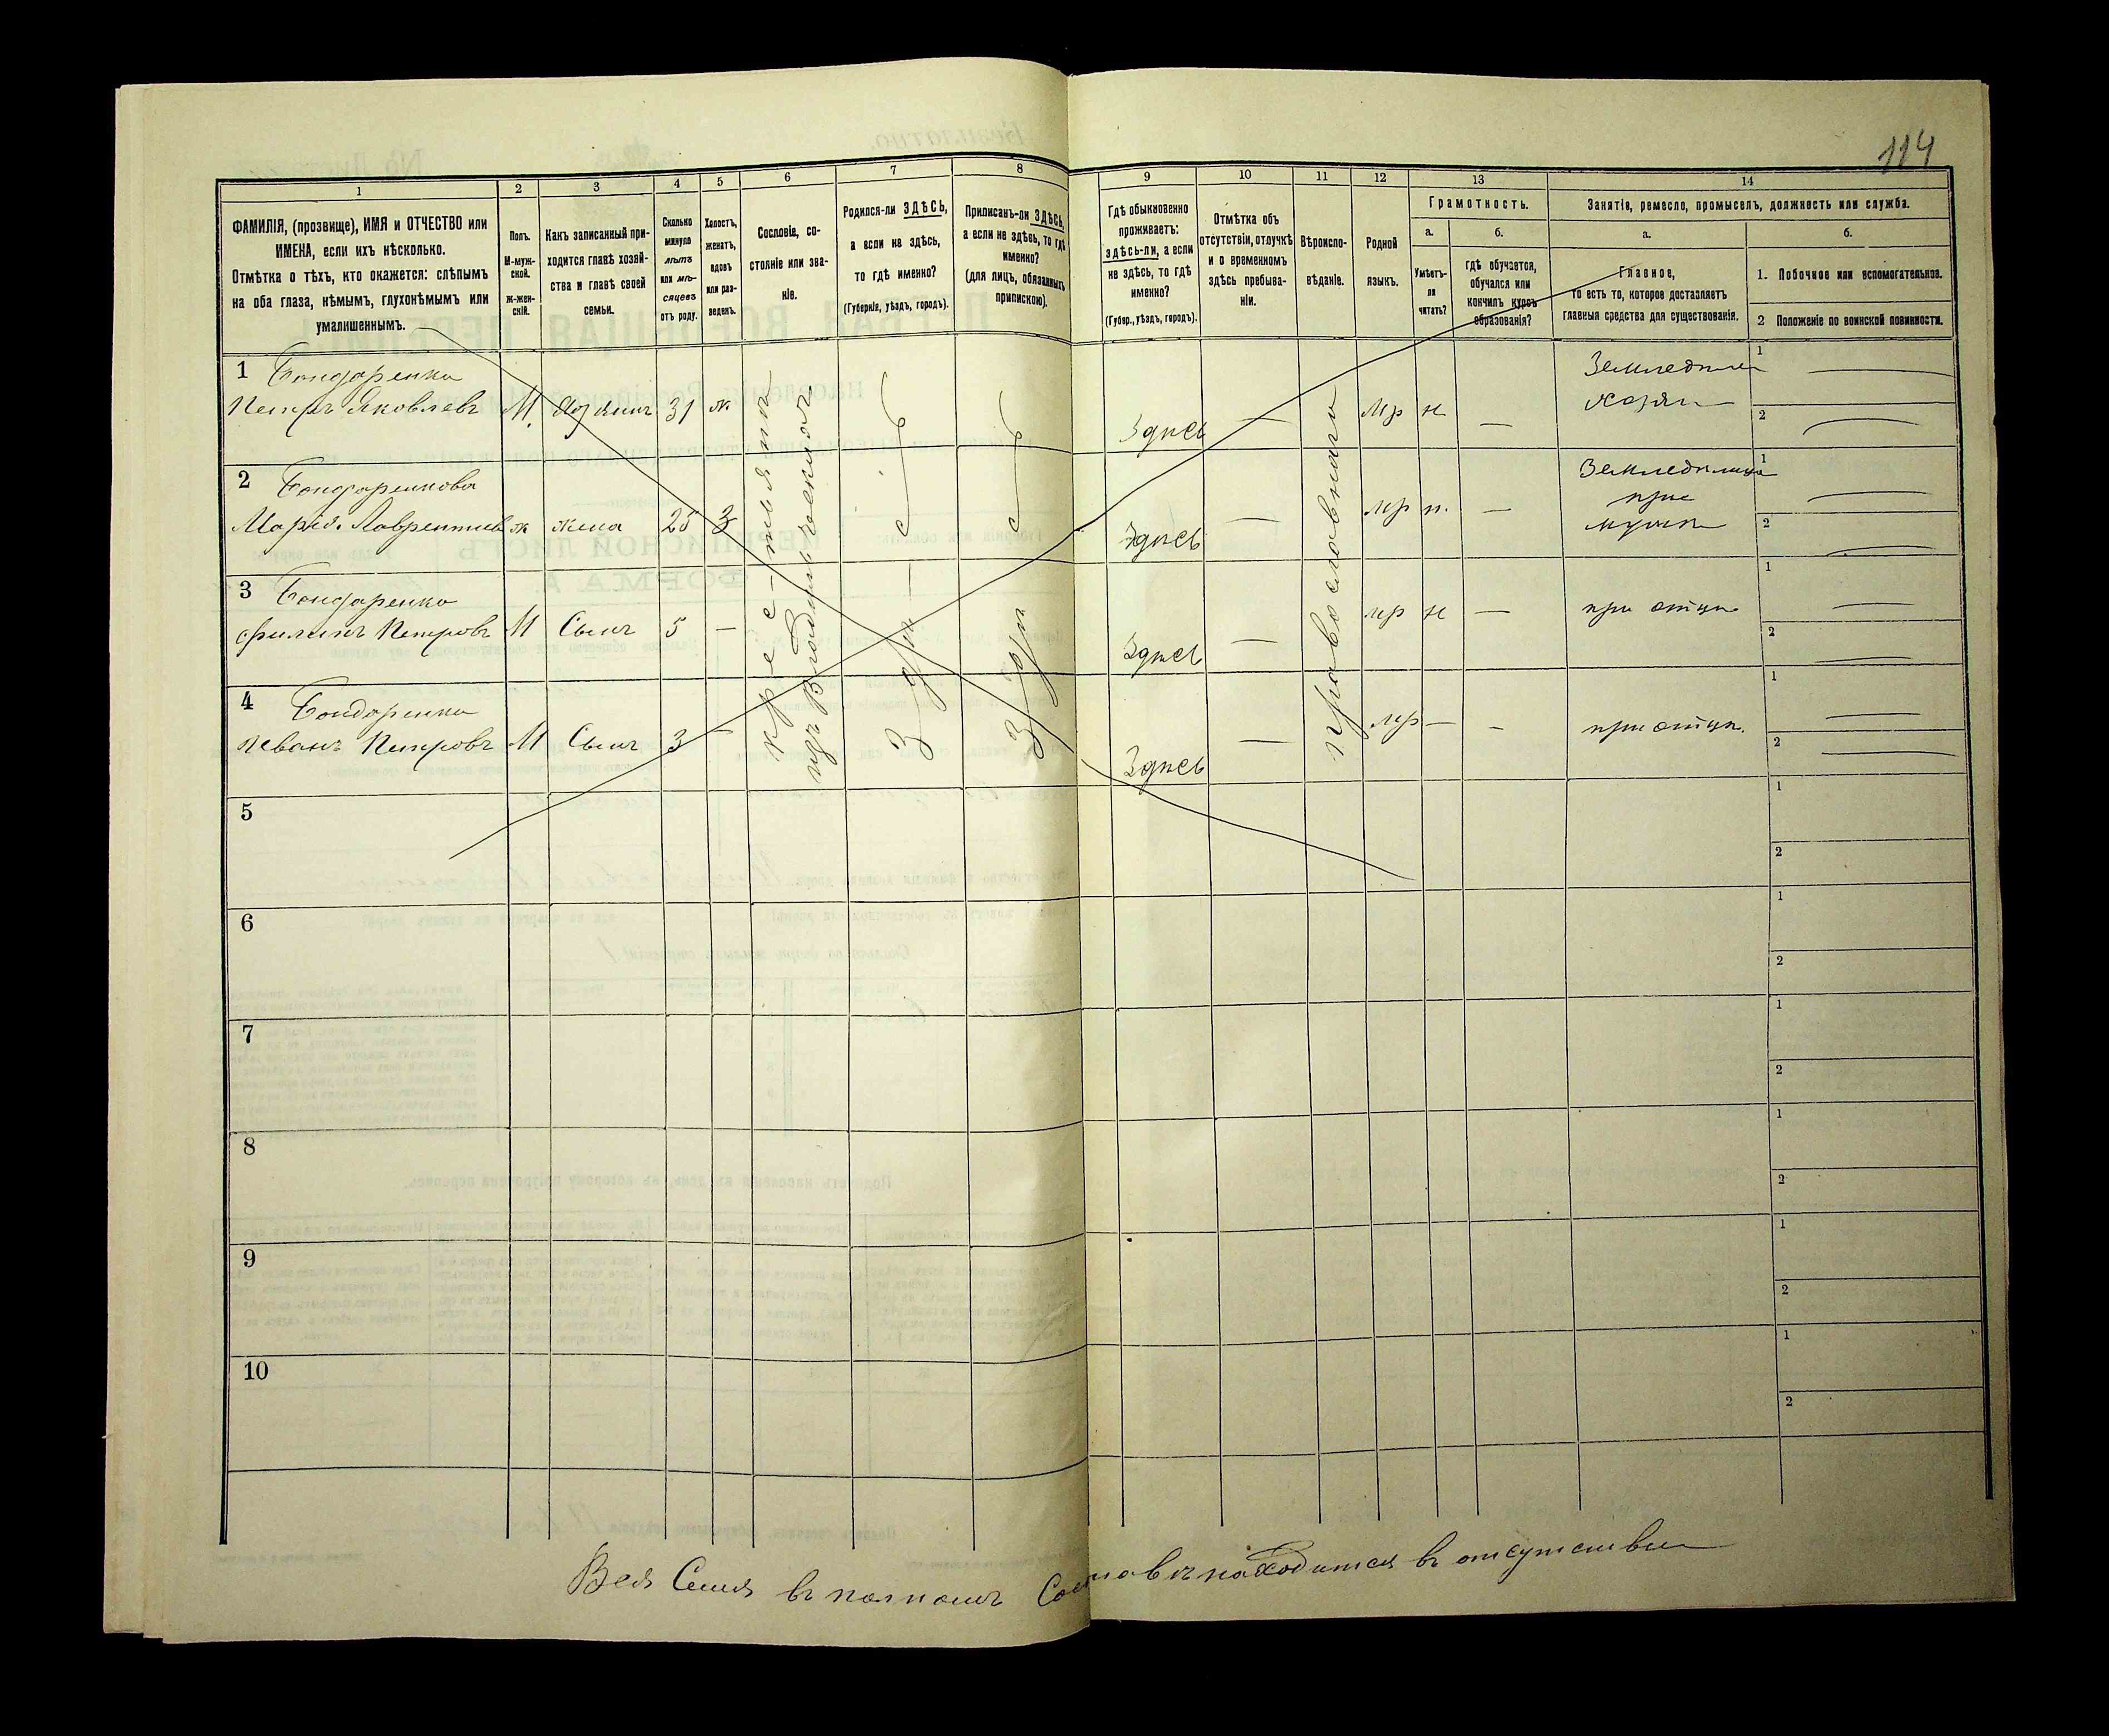 114
1 2 3 4 5 6 7 8 9 10 11 12 13 14
ФАМИЛІЯ, (прозвище), ИМЯ и ОТЧЕСТВО или
ИМЕНА, если ихъ нѣсколько.
Отмѣтка о тѣхъ, кто окажется: слѣпымъ
на оба глаза, нѣмымъ, глухонѣмымъ или
умалишеннымъ.
Полъ.
М-муж-
ской.
Ж-жен-
скій.
Какъ записанный при-
ходится главѣ хозяй-
ства и главѣ своей
семьи.
Сколько
минуло
лѣтъ
или мѣ-
сяцевъ
отъ роду.
Холостъ,
женатъ,
вдовъ
или раз-
веденъ.
Сословіе, со-
стояніе или зва-
ніе.
Родился-ли ЗДѢСЬ,
а если не здѣсь,
то гдѣ именно?
(Губернія, уѣздъ, городъ).
Приписанъ-ли ЗДѢСЬ,
а если не здѣсь, то гдѣ
именно?
(для лицъ, обязанныхъ
припискою).
Гдѣ обыкновенно
проживаетъ:
здѣсь-ли, а если
не здѣсь, то гдѣ
именно?
(Губер., уѣздъ, городъ).
Отмѣтка объ
отсутствіи, отлучкѣ
и о временномъ
здѣсь пребыва-
ніи.
Вѣроиспо-
вѣданіе.
Родной
языкъ.
Грамотность.
а.
Умѣетъ-
ли
читать?
б.
гдѣ обучается,
обучался или
кончилъ курсъ
образованія?
Занятіе, ремесло, промыселъ, должность или служба.
а.
Главное,
то есть то, которое доставляетъ
главныя средства для существованія.
б.
1. Побочное или вспомогательное.
2 Положеніе по воинской повинности.
1 Бондаренко
Петръ Яковлевъ М. Хозяинъ 31 ж Здѣсь — мр н — 1 2
Земледѣлец
хозяин
2 Бондаренкова
Марія Лаврентьев ж жена 25 З Здѣсь — мр н. — 1 2
Земледѣлица
при
мужѣ
3 Бондаренко
Филипъ Петровъ М Сынъ 5 — Здѣсь — мр н — при отцѣ 1 2
4 Бондаренко
Иванъ Петровъ М Сынъ 3 — Здѣсь — мр — — при отцѣ. 1 2
крестьянинъ
изъ Владѣльческихъ
Здѣсь
Здѣсь
православнаго
5 1 2
6 1 2
7 1 2
8 1 2
9 1 2
10 1 2
Вся Семя въ полномъ Составѣ находится въ отсутствии